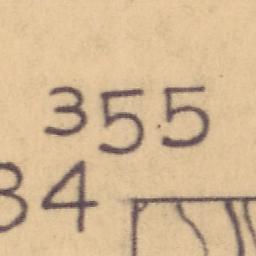 355
34